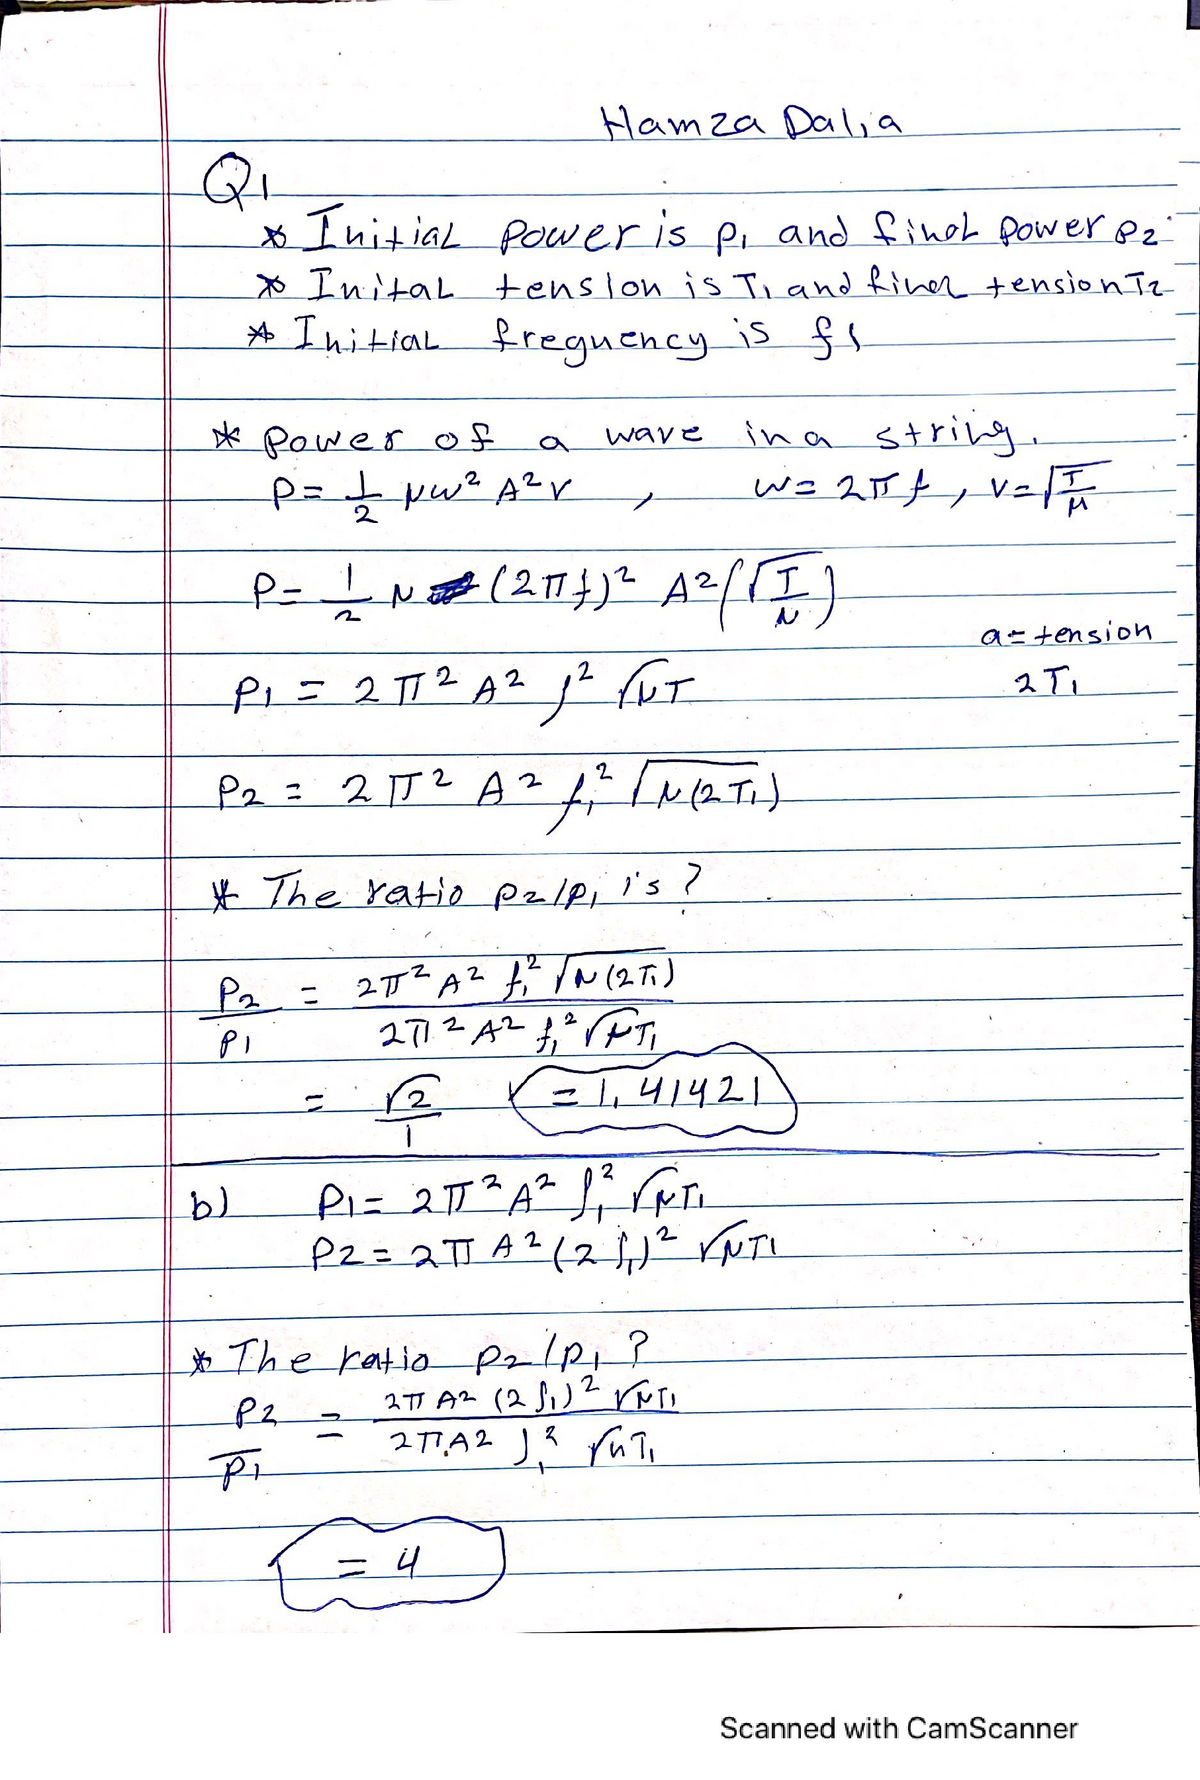 Hamza Dalia
Q1
* Initial power is P1 and final power P2
* Inital tension is T1 and final tension T2
* Initial frequency is f1
* Power of a wave in a string.
P = 1/2 μw² A² v , w = 2πf , v = √(T/μ)
P = 1/2 μ (2πf)² A² (√(T/μ))
a = tension
P1 = 2π² A² f² √μT
2T1
P2 = 2π² A² f1² √μ(2T1)
* The ratio P2/P1 is ?
P2/P1 = 2π² A² f1² √μ(2T1) / 2π² A² f1² √μT1
= √2/1 = 1,41421
b) P1 = 2π² A² f1² √μT1
P2 = 2π A² (2f1)² √μT1
* The ratio P2/P1 ?
P2/P1 = 2π A² (2f1)² √μT1 / 2π A² f1² √μT1
= 4
Scanned with CamScanner